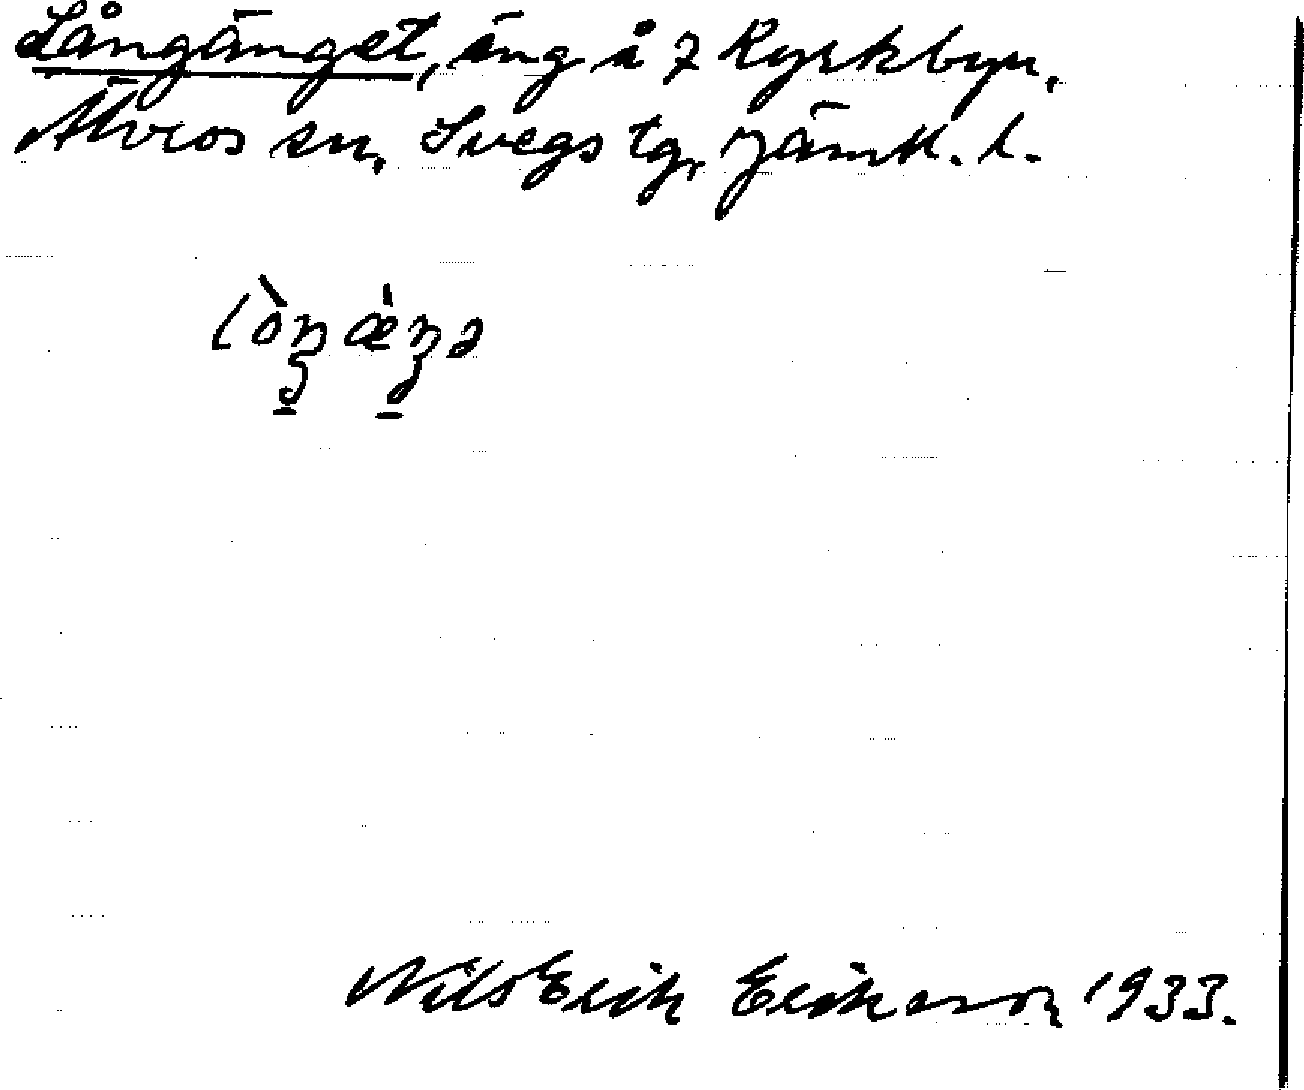 Långänget, äng å 7 Kyrkbyn,
Älvros sn, Svegs tg, Jämtl. l.
lòŋæ̀ŋə
Nils Erik Eriksson 1933.